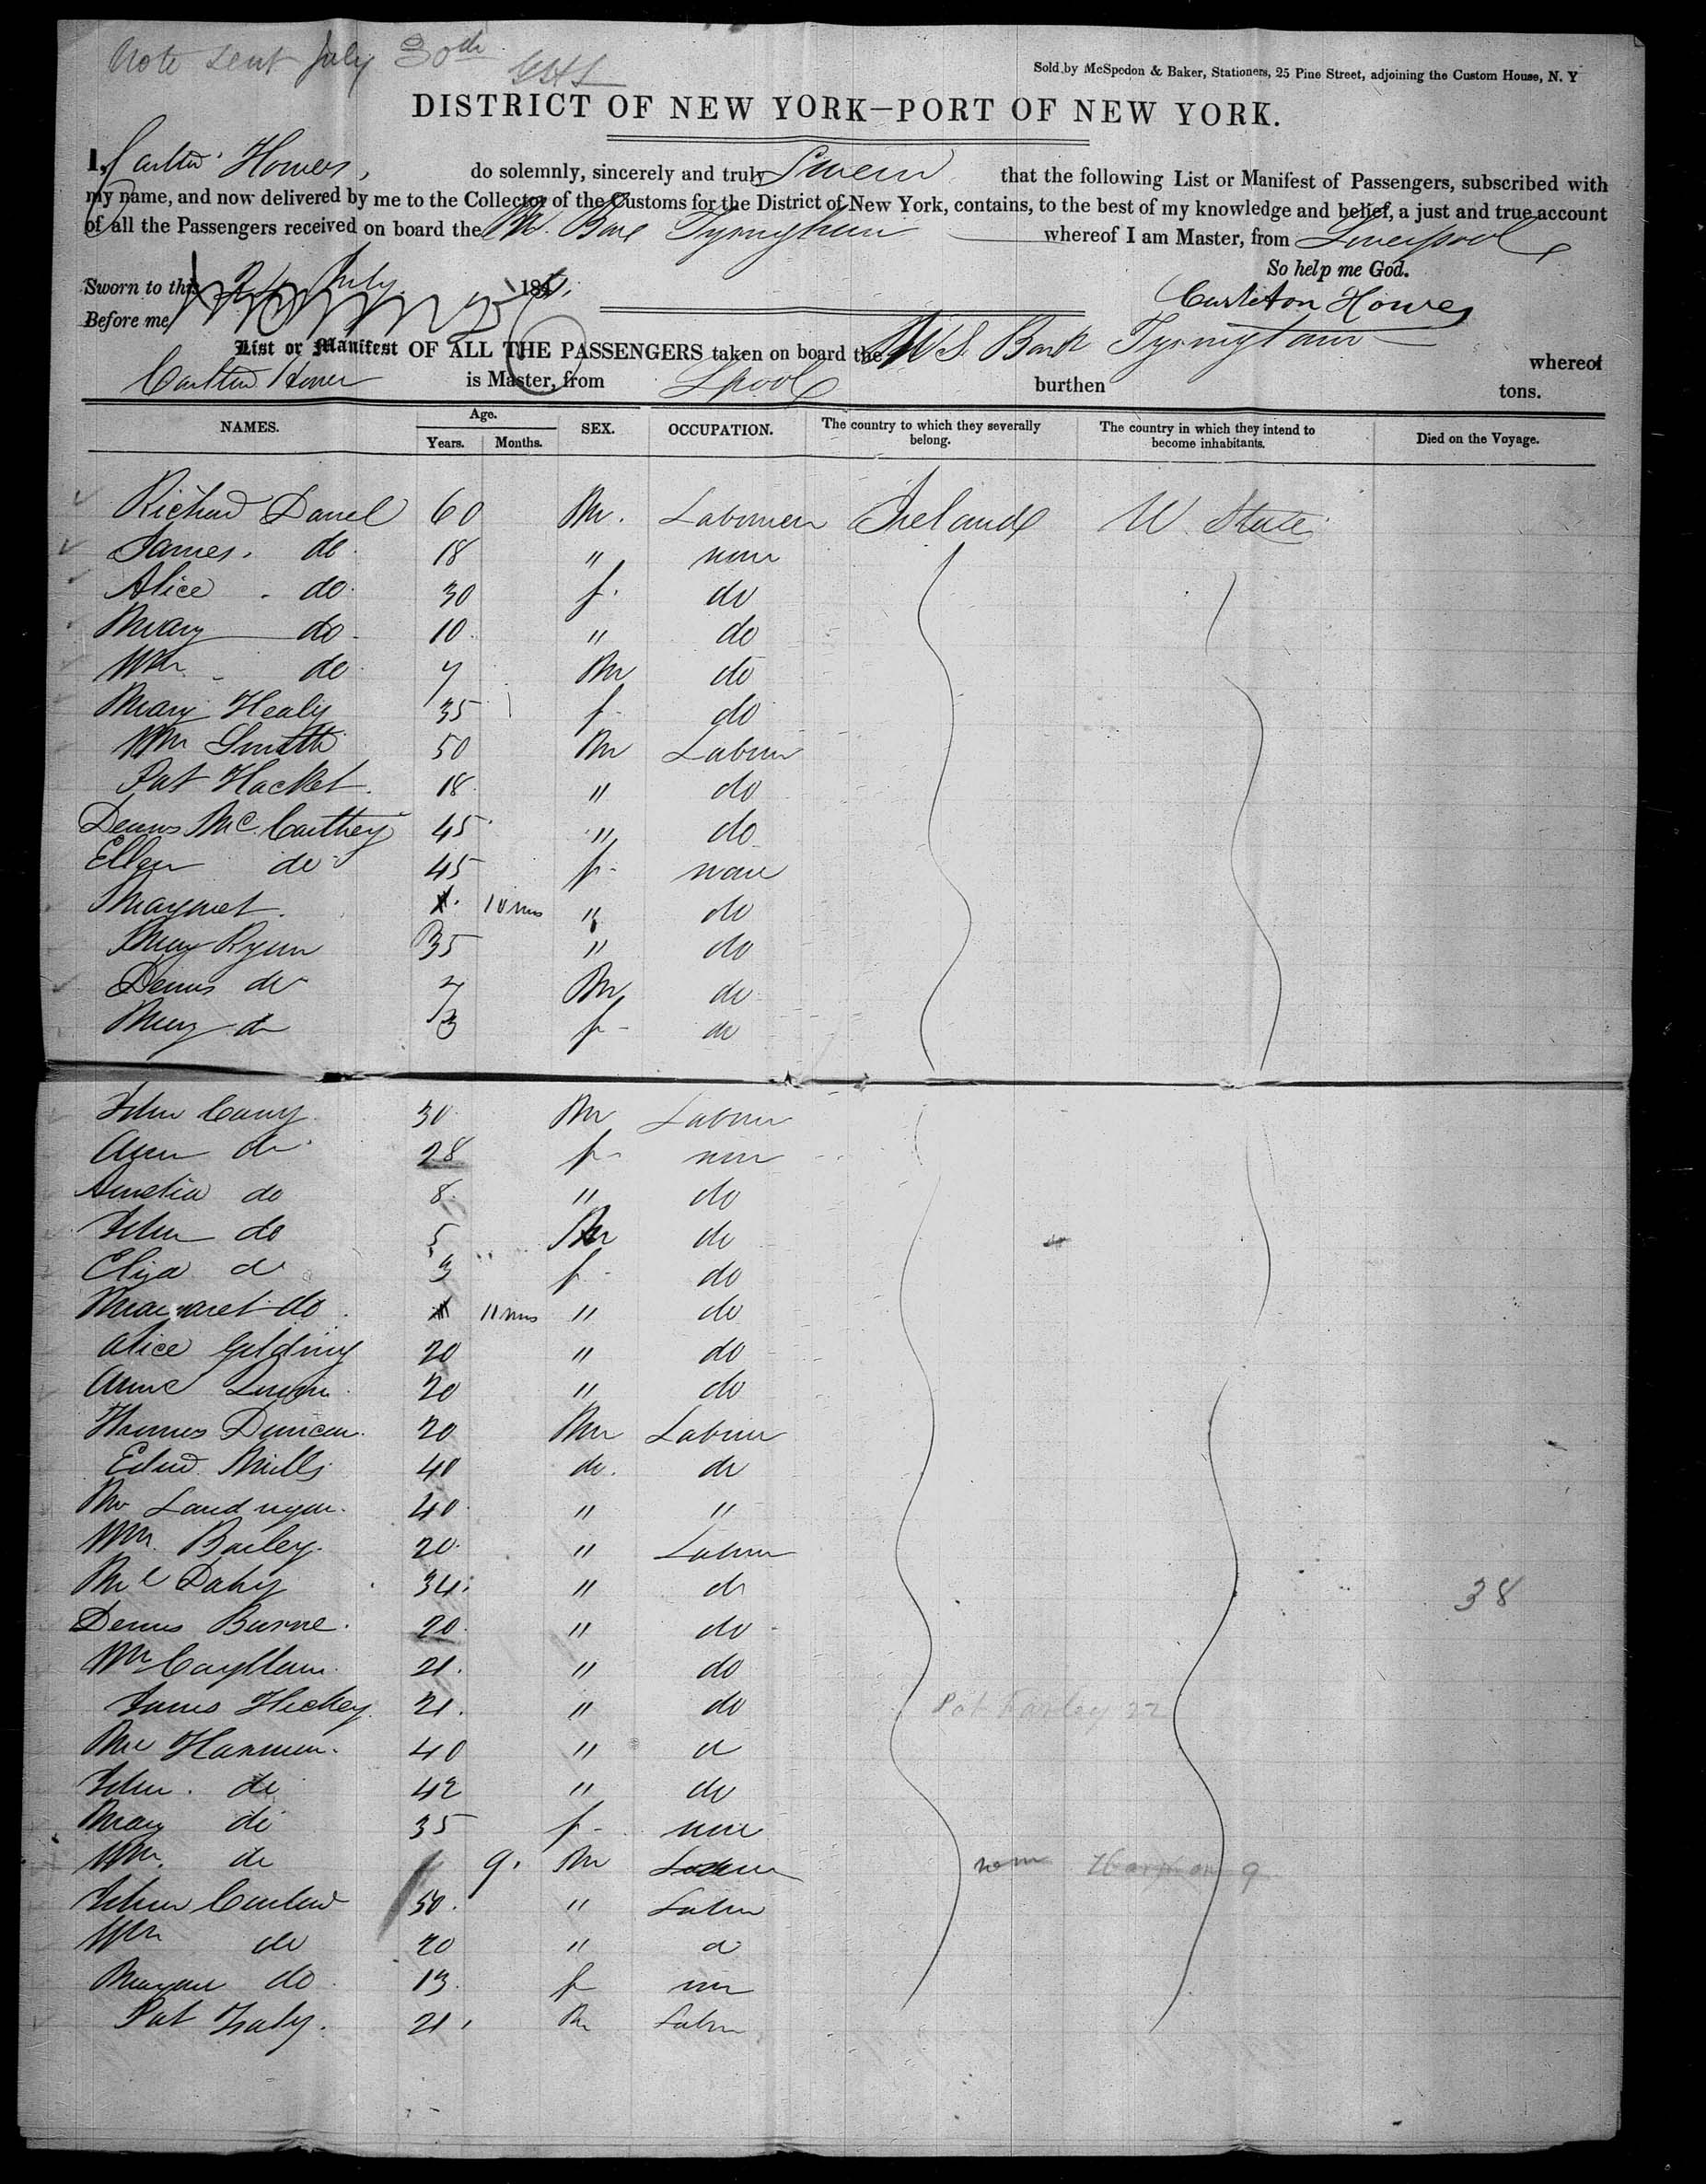 Note sent July 30th
Sold by McSpedon & Baker, Stationers, 25 Pine Street, adjoining the Custom House, N. Y
DISTRICT OF NEW YORK—PORT OF NEW YORK.
I, Carlton Howes, do solemnly, sincerely and truly Swear that the following List or Manifest of Passengers, subscribed with
my name, and now delivered by me to the Collector of the Customs for the District of New York, contains, to the best of my knowledge and belief, a just and true account
of all the Passengers received on board the Bark Tyringham whereof I am Master, from Liverpool
So help me God.
Sworn to this 24 July 184
Carleton Howes
Before me
List or Manifest OF ALL THE PASSENGERS taken on board the Bark Tyringham whereof
Carlton Howes is Master, from Lpool burthen tons.
NAMES. Age. Years. Months. SEX. OCCUPATION. The country to which they severally belong. The country in which they intend to become inhabitants. Died on the Voyage.
Richard Darrel 60 M. Labourer Ireland U State
James. do 18 " none
Alice . do. 30 f. do
Mary do 10 " do
Wm do 7 M do
Mary Healy 35 f do
Wm Smith 50 M Labour
Pat Hacket. 18 " do
Dennis McCarthey 45 " do
Ellen do 45 f none
Margret. 10 ms " do
Mary Ryan 35 " do
Dennis do 7 M do
Mary do 3 f do
John 30 M Labour
Ann do 28 f none
Amelia do 8 " do
John do 5 M do
Eliza do 3 f do
Margaret do 11 ms " do
Alice Gelding 20 " do
Anne 20 " do
Thomas Duncan 20 M Labour
Edwd Mills 40 do. do
40 " "
Wm. Bailey. 20 " Labour
34 " do
Dennis Burne. 20 " do
Wm 21. " do
James Hickey 21. " do
Harmon. 40 " do
John. do 42 " do
Mary do 35 f none
Wm. do 9. M
John 50. " Labour
Wm do 20 " do
do 13. f none
Pat 21. M Labour
38
Pat Farley 22
Harmon 9